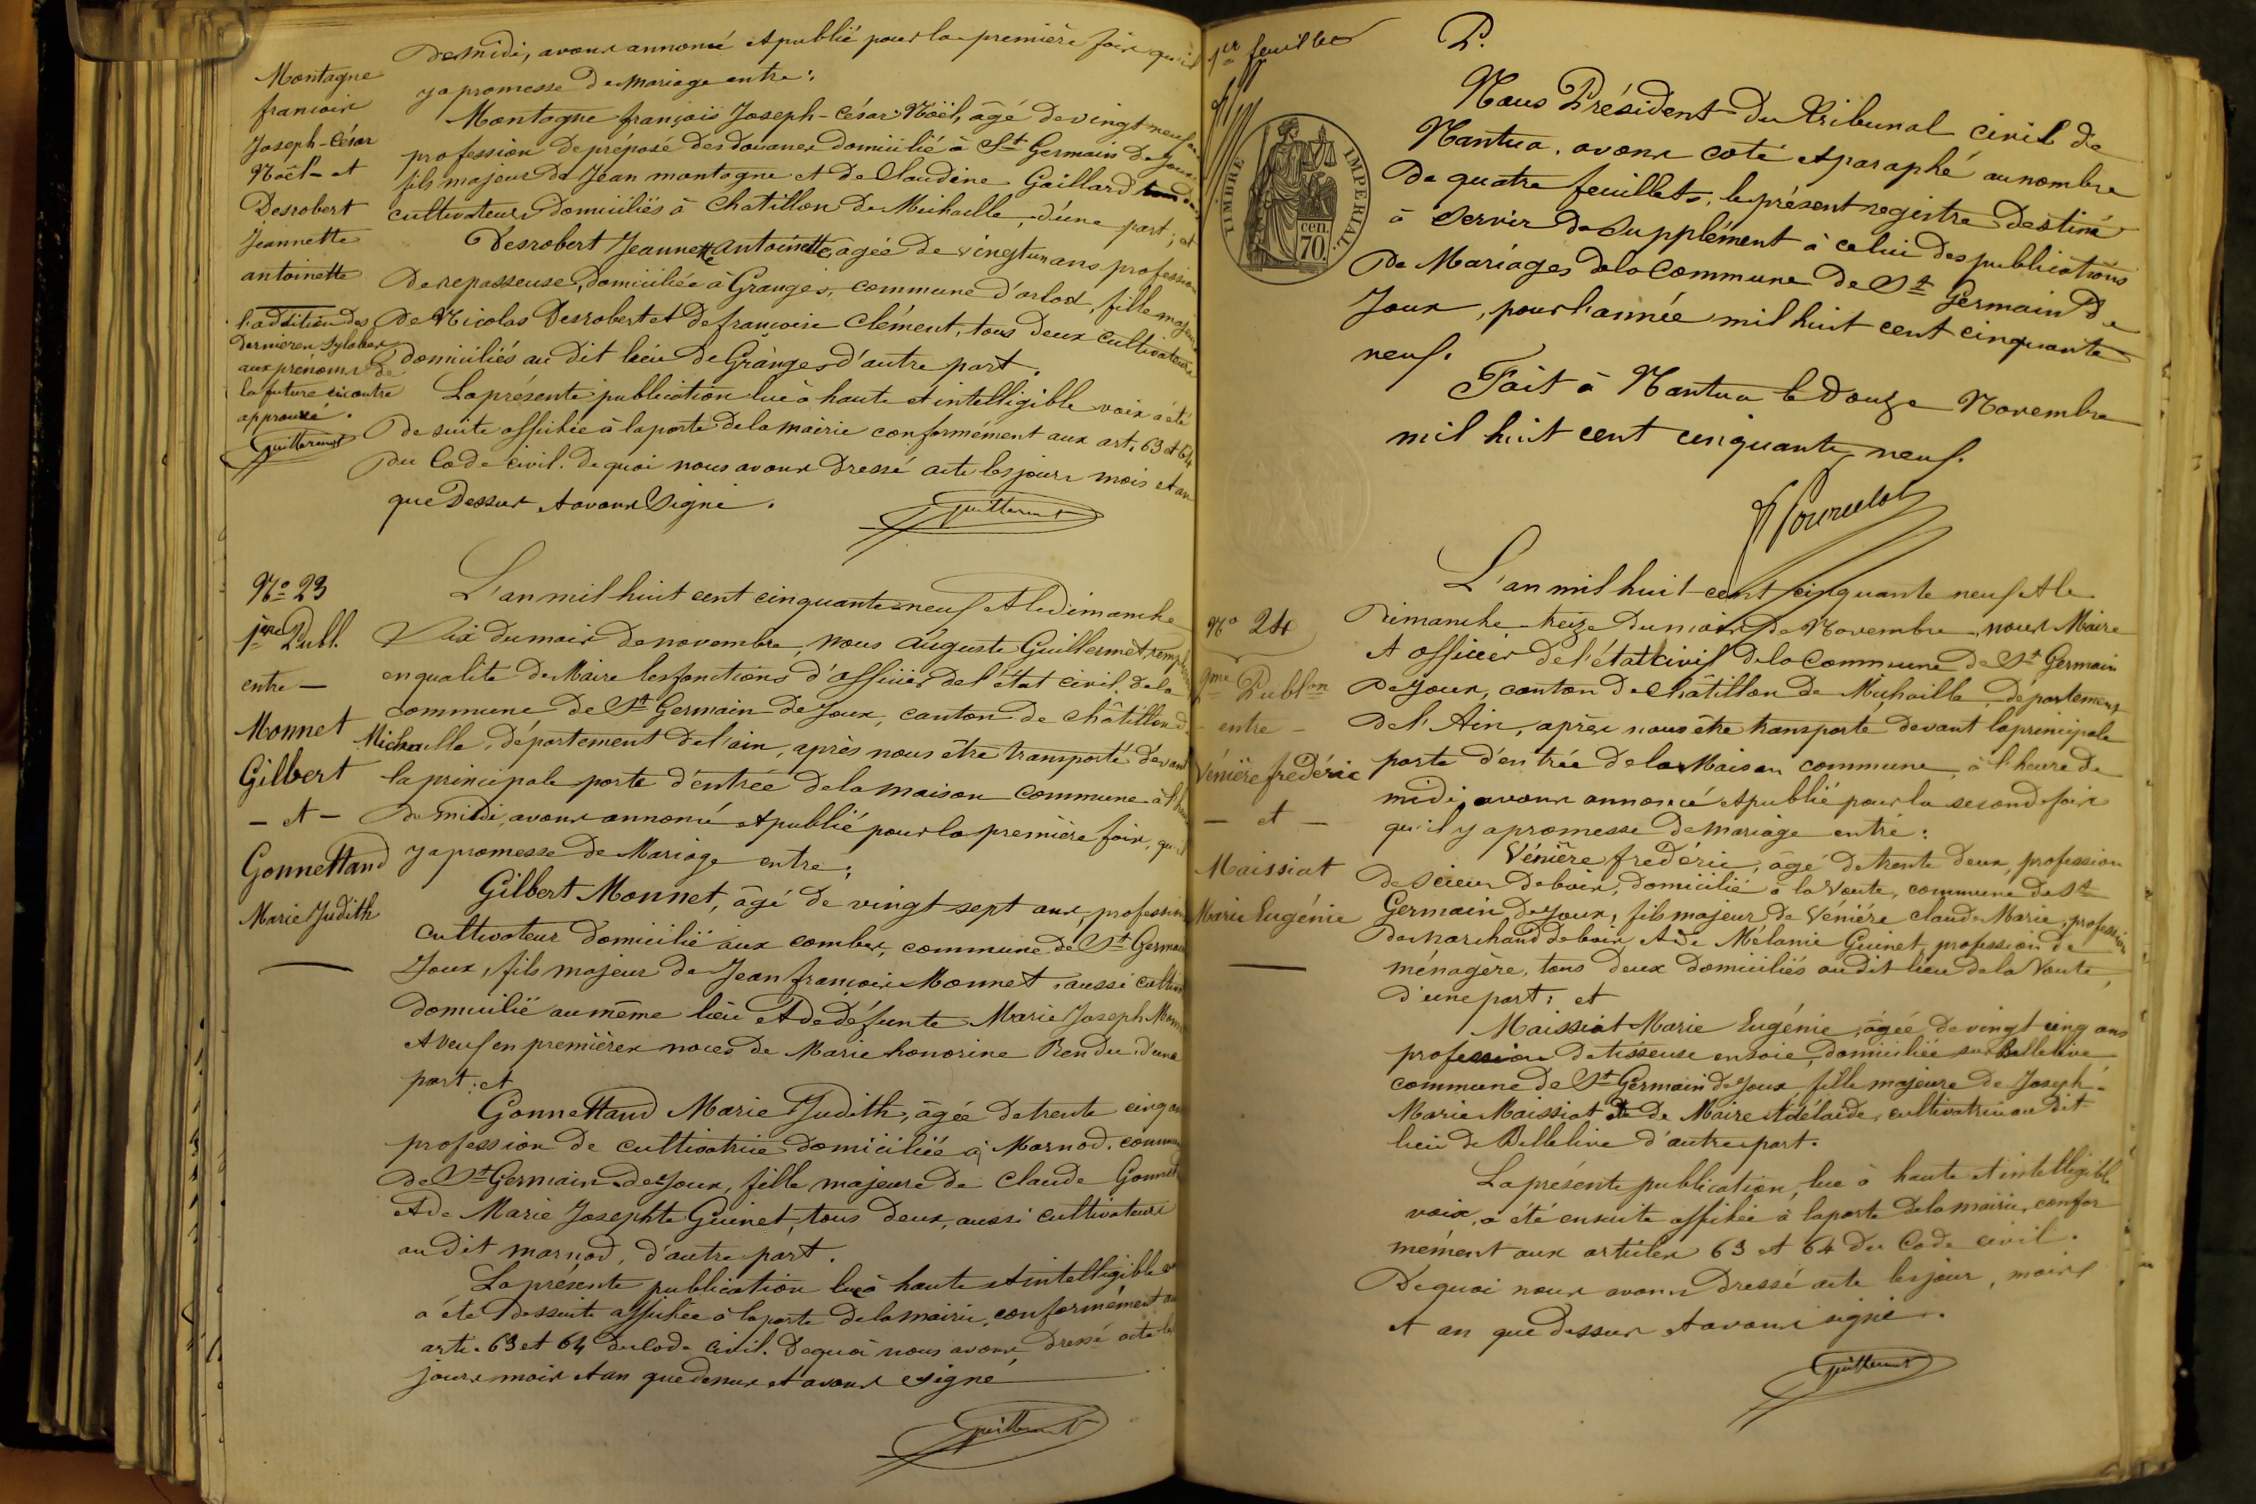 Montagne
francois
Joseph-César
Noël - et
Desrobert
Jeannette
antoinette
l'addition des
dernieres sylabes
aux prénoms de
la future ci contre
approuvé.
Guillermet
de midi, avons annoncé et publié pour la première fois qu'il
y a promesse de mariage entre :
Montagne françois Joseph-César Noël, âgé de vingt neuf ans
profession de préposé des douanes domicilié à St Germain de Joux
fils majeur de Jean montagne et de Claudine Gaillard
cultivateurs domiciliés à Chatillon de Michaille, d'une part; et
Desrobert Jeannette antoinette, âgée de vingt un ans profession
de repasseuse, domiciliée à Granges, commune d'arlod, fille majeure
de Nicolas Desrobert et de francoise Clément, tous deux cultivateurs
domiciliés au dit lieu de Granges d'autre part.
La présente publication lue à haute et intelligible voix a été
de suite affichée à la porte de la mairie conformément aux art. 63 et 64
du Code civil. De quoi nous avons dressé acte les jours mois et an
que dessus et avons signé.
Guillermet
No 23
1ère Publ.
entre —
Monnet
Gilbert
- et -
Gonnettand
Marie Judith
L'an mil huit cent cinquante neuf et le dimanche
Six du mois de novembre, nous auguste Guillermet,
en qualité de Maire les fonctions d'officier de l'état civil de la
commune de St Germain de Joux, canton de châtillon de
Michaille, département de l'ain, après nous être transporté devant
la principale porte d'entrée de la maison commune à l'heure
de midi, avons annoncé et publié pour la première fois, qu'il
y a promesse de Mariage entre ;
Gilbert Monnet, âgé de vingt sept ans, profession
cultivateur domicilié aux combes, commune de St Germain
Joux, fils majeur de Jean françois Monnet, aussi cultiv
domicilié au même lieu et de défunte Marie Joseph
et veuf en premières noces de Marie honorine Rendu, d'une
part ; et
Gonnettand Marie Judith, âgée de trente cinq ans
profession de cultivatrice domiciliée à Marnod, commune
de St Germain de Joux, fille majeure de Claude Gonnet
et de Marie Josephte Guinet, tous deux, aussi cultivateurs
au dit marnod, d'autre part.
La présente publication lue à haute et intelligible
a été de suite affichée à la porte de la mairie, conformément
art. 63 et 64 du Code civil. De quoi nous avons, dressé acte les
jours mois et an que dessus et avons signé
Guillermet
1er feuillet
P.
TIMBRE IMPERIAL
70 cen.
Nous Président du Tribunal civil de
Nantua, avons coté et paraphé au nombre
de quatre feuillets, le présent registre destiné
à servir de supplément à celui des publications
de Mariages de la Commune de St Germain de
Joux, pour l'année mil huit cent cinquante
neuf.
Fait à Nantua le Douze Novembre
mil huit cent cinquante neuf.
No 24
2me Publon
- entre -
Vénière frédéric
- et -
Maissiat
Marie Eugénie
L'an mil huit cent cinquante neuf et le
Dimanche treize du mois de Novembre, nous Maire
et officier de l'état civil de la Commune de St Germain
de Joux, canton de Châtillon de Michaille, département
de l'Ain, après nous être transporté devant la principale
porte d'entrée de la Maison commune, à l'heure de
midi, avons annoncé et publié pour la seconde fois
qu'il y a promesse de mariage entre :
Vénière frédéric, âgé de trente deux, profession
de scieur de bois, domicilié à la Voute, commune de St
Germain de Joux, fils majeur de Vénière claude Marie, profession
de marchand de bois et de Mélanie Guinet, profession de
ménagère, tous deux domiciliés au dit lieu de la Voute,
d'une part ; et
Maissiat Marie Eugénie, âgée de vingt cinq ans
profession de tisseuse en soie, domiciliée sur Bellelive
commune de St Germain de Joux fille majeure de Joseph-
Marie Maissiat et de Maire Adélaïde, cultivatrice au dit
lieu de Bellelive d'autre part.
La présente publication, lue à haute et intelligible
voix, a été ensuite affichée à la porte de la mairie, confor
mément aux articles 63 et 64 du Code civil.
De quoi nous avons dressé acte les jour, mois
et an que dessus et avons signé.
Guillermet